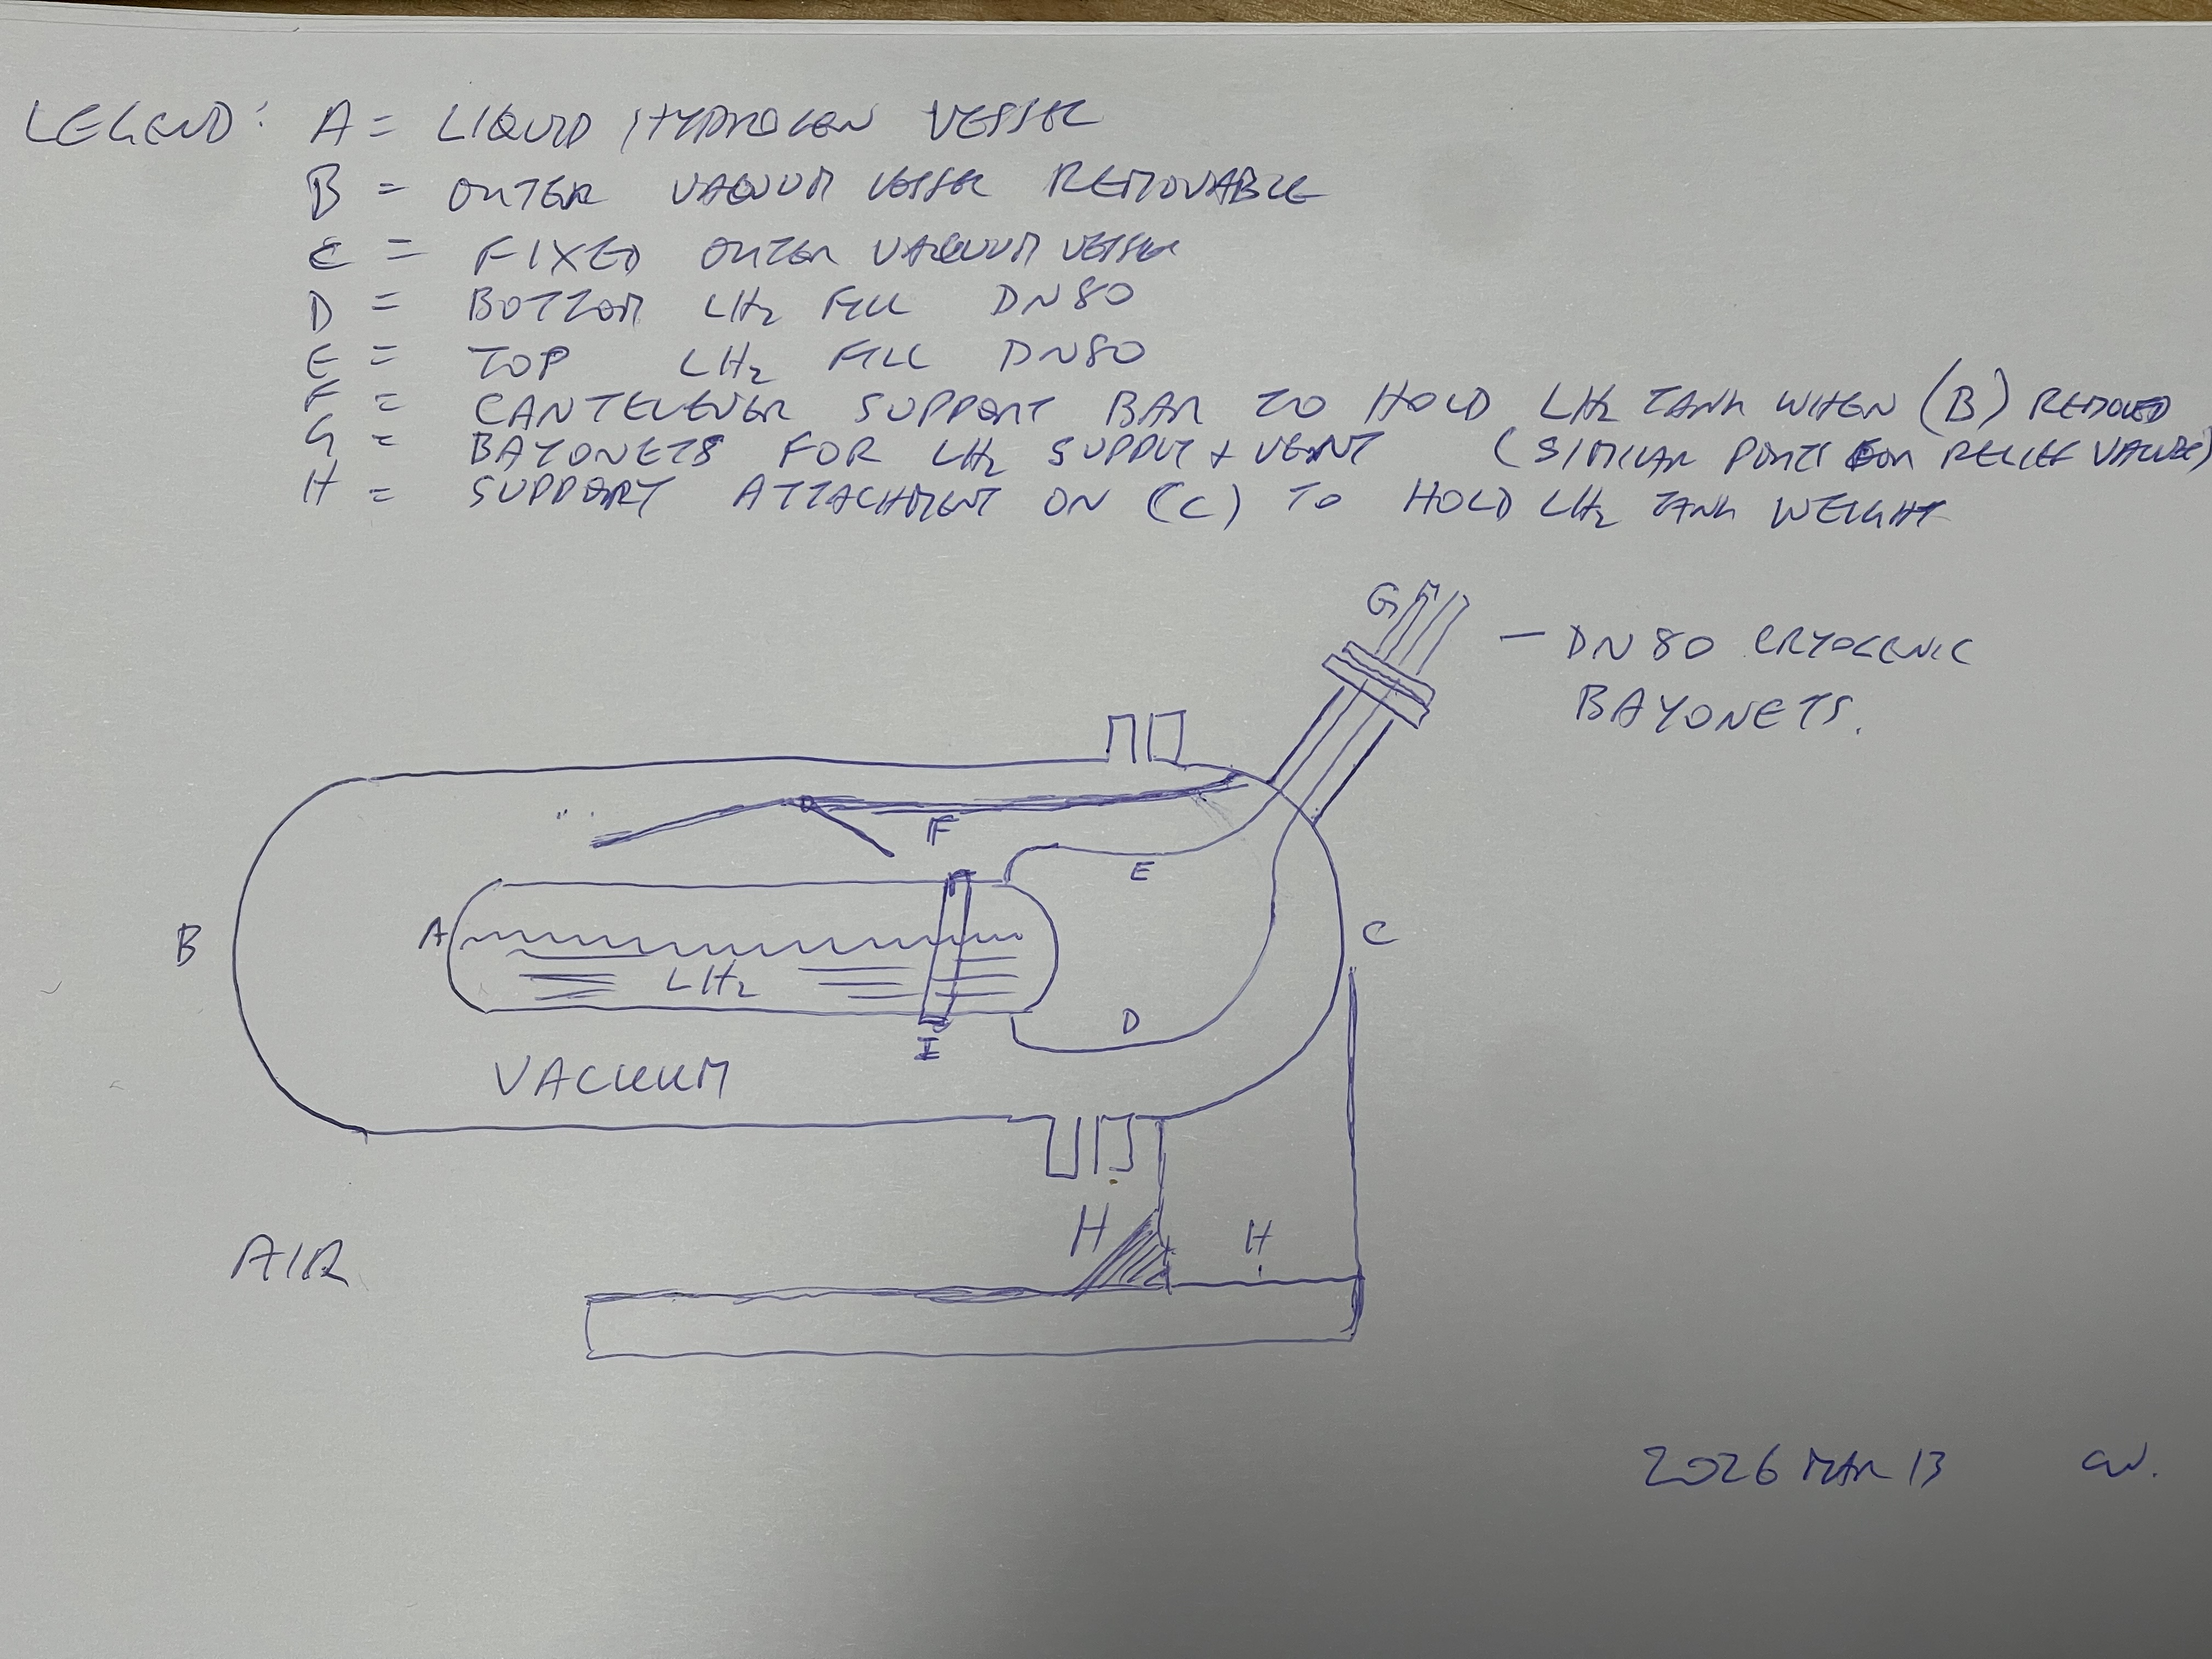 LEGEND: A = LIQUID HYDROGEN VESSEL
B = OUTER VACUUM VESSEL REMOVABLE
C = FIXED OUTER VACUUM VESSEL
D = BOTTOM LH2 FILL DN80
E = TOP LH2 FILL DN80
F = CANTELEVER SUPPORT BAR TO HOLD LH2 TANK WHEN (B) REMOVED
G = BAYONETS FOR LH2 SUPPLY + VENT (SIMILAR PORTS FOR RELIEF VALVES)
H = SUPPORT ATTACHMENT ON (C) TO HOLD LH2 TANK WEIGHT
G
- DN80 CRYOGENIC
BAYONETS.
F
E
B
A
C
LH2
D
I
VACUUM
H
H
AIR
2026 MAR 13